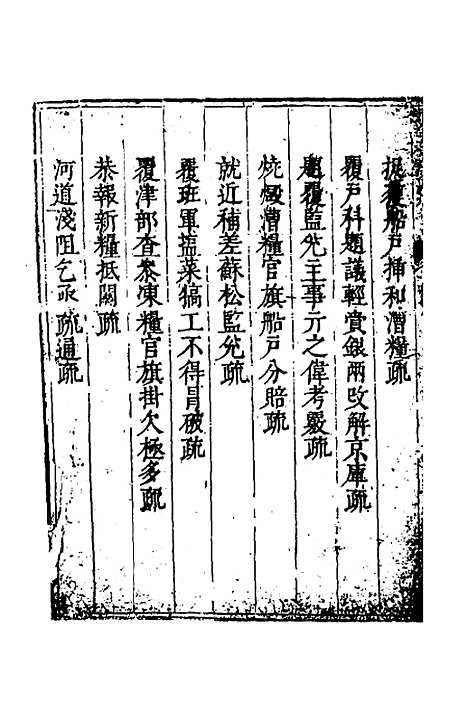 捉獲船戶揷和漕糧疏
覆戶科題議輕賫銀兩改解京庫疏
題覆監兊主事亓之偉考覈疏
燒燬漕糧官旗船戶分賠疏
就近補差蘇松監兊疏
覆班軍鹽菜犒工不得冐破疏
覆津部查叅凍糧官旗掛欠極多疏
恭報新糧抵關疏
河道淺阻乞亟疏通疏